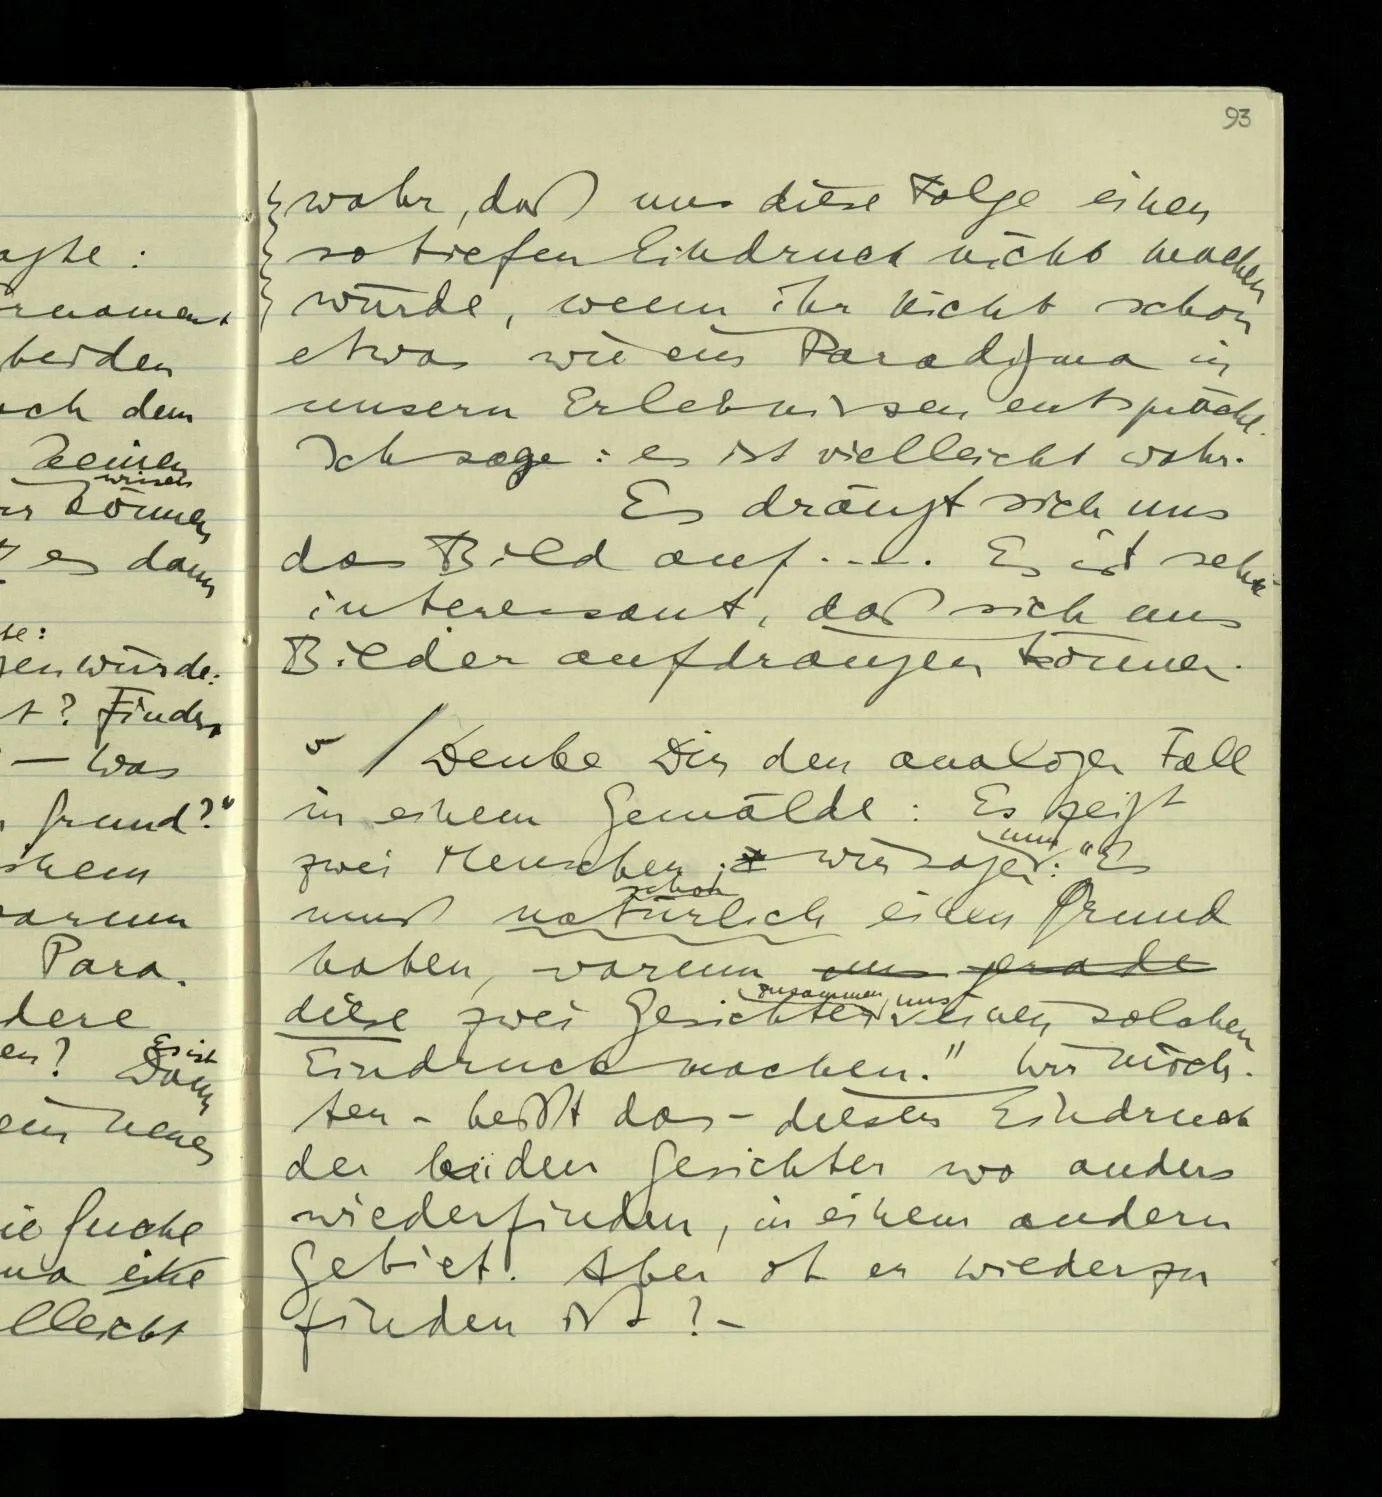 93
wahr, daß uns diese Folge einen
so tiefen Eindruck nicht machen
würde, wenn ihr nicht schon
etwas wie ein Paradigma in
unsern Erlebnissen entspräche.
Ich sage: es ist vielleicht wahr.
Es drängt sich uns
das Bild auf.... Es ist sehr
interessant, daß sich uns
Bilder aufdrängen können.
/ Denke Dir den analogen Fall
in einem Gemälde: Es zeigt
zwei Menschen; wir sagen nun: "Es
muß schon natürlich einen Grund
haben, warum uns gerade
diese zwei Gesichter zusammen uns einen solchen
Eindruck machen." Wir möch-
ten – heißt das – diesen Eindruck
der beiden Gesichter wo anders
wiederfinden, in einem andern
Gebiet. Aber ob er wiederzu
finden ist? –
beiden
dem
keinen
wissen
können
es dann
würde:
? Finden
— was
Grund?"
warum
Para-
Es ist
Dann
ein neues